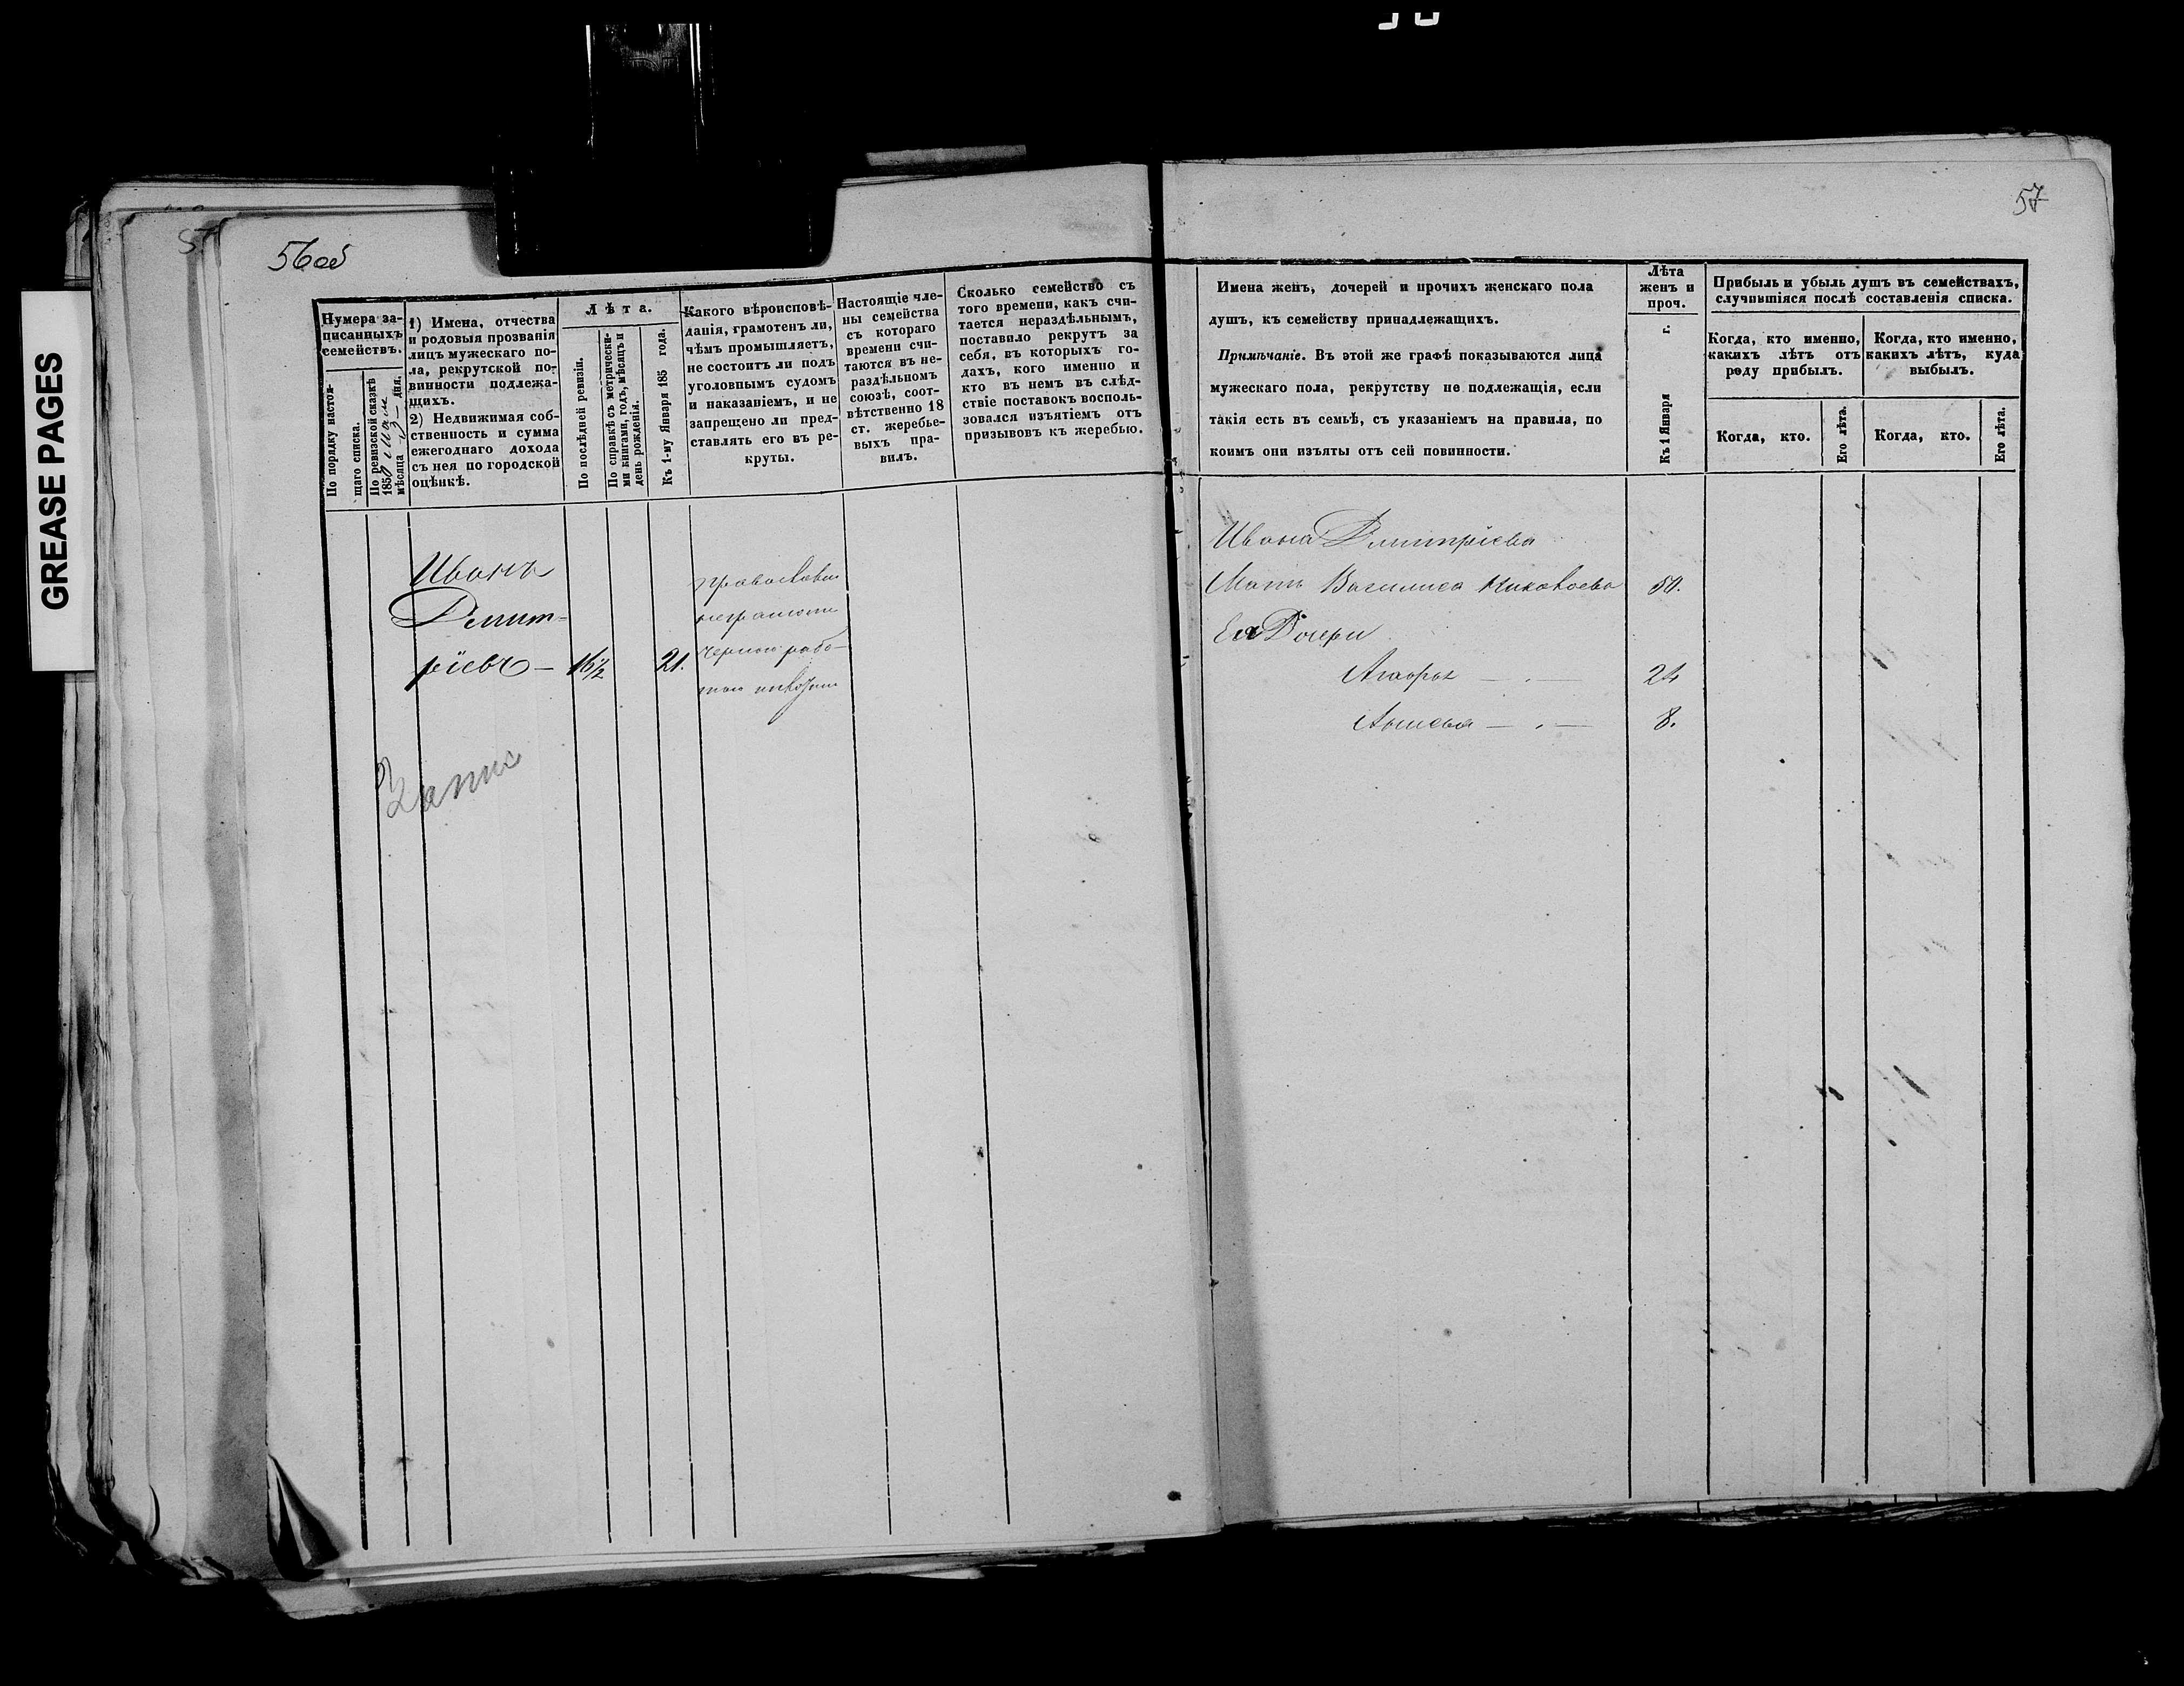 GREASE PAGES
56об
57
Нумера за-
писанныхъ
семействъ.
По порядку настоя-
щаго списка.
По ревизской сказкѣ
1850
мѣсяца дня.
1) Имена, отчества
и родовыя прозванія
лицъ мужескаго по-
ла, рекрутской по-
винности подлежа-
щихъ.
2) Недвижимая соб-
ственность и сумма
ежегоднаго дохода
съ нея по городской
оцѣнкѣ.
Лѣта.
По послѣдней ревизіи.
По справкѣ съ метрически-
ми книгами, годъ, мѣсяцъ и
день рожденія.
Къ 1-му Января 185 года.
Какого вѣроисповѣ-
данія, грамотенъ ли,
чѣмъ промышляетъ,
не состоитъ ли подъ
уголовнымъ судомъ
и наказаніемъ, и не
запрещено ли пред-
ставлять его въ ре-
круты.
Настоящіе чле-
ны семейства
съ котораго
времени счи-
таются въ не-
раздѣльномъ
союзѣ, соот-
вѣтственно 18
ст. жеребье-
выхъ пра-
вилъ.
Сколько семейство съ
того времени, какъ счи-
тается нераздѣльнымъ,
поставило рекрутъ за
себя, въ которыхъ го-
дахъ, кого именно и
кто въ немъ въ слѣд-
ствіе поставокъ восполь-
зовался изъятіемъ отъ
призывовъ къ жеребью.
Имена женъ, дочерей и прочихъ женскаго пола
душъ, къ семейству принадлежащихъ.
Примѣчаніе. Въ этой же графѣ показываются лица
мужескаго пола, рекрутству не подлежащія, если
такія есть въ семьѣ, съ указаніемъ на правила, по
коимъ они изъяты отъ сей повинности.
Лѣта
женъ и
проч.
Къ 1 Января г.
Прибыль и убыль душъ въ семействахъ,
случившіяся послѣ составленія списка.
Когда, кто именно,
какихъ лѣтъ отъ
роду прибылъ.
Когда, кто именно,
какихъ лѣтъ, куда
выбылъ.
Когда, кто.
Его лѣта.
Когда, кто.
Его лѣта.
Иванъ
Дмит-
ріевъ — 16½ 21.
православн
неграмотн
черной рабо-
тою
Ивана Дмитріева
Мать Василиса 50.
Ея Дочери
24
8.